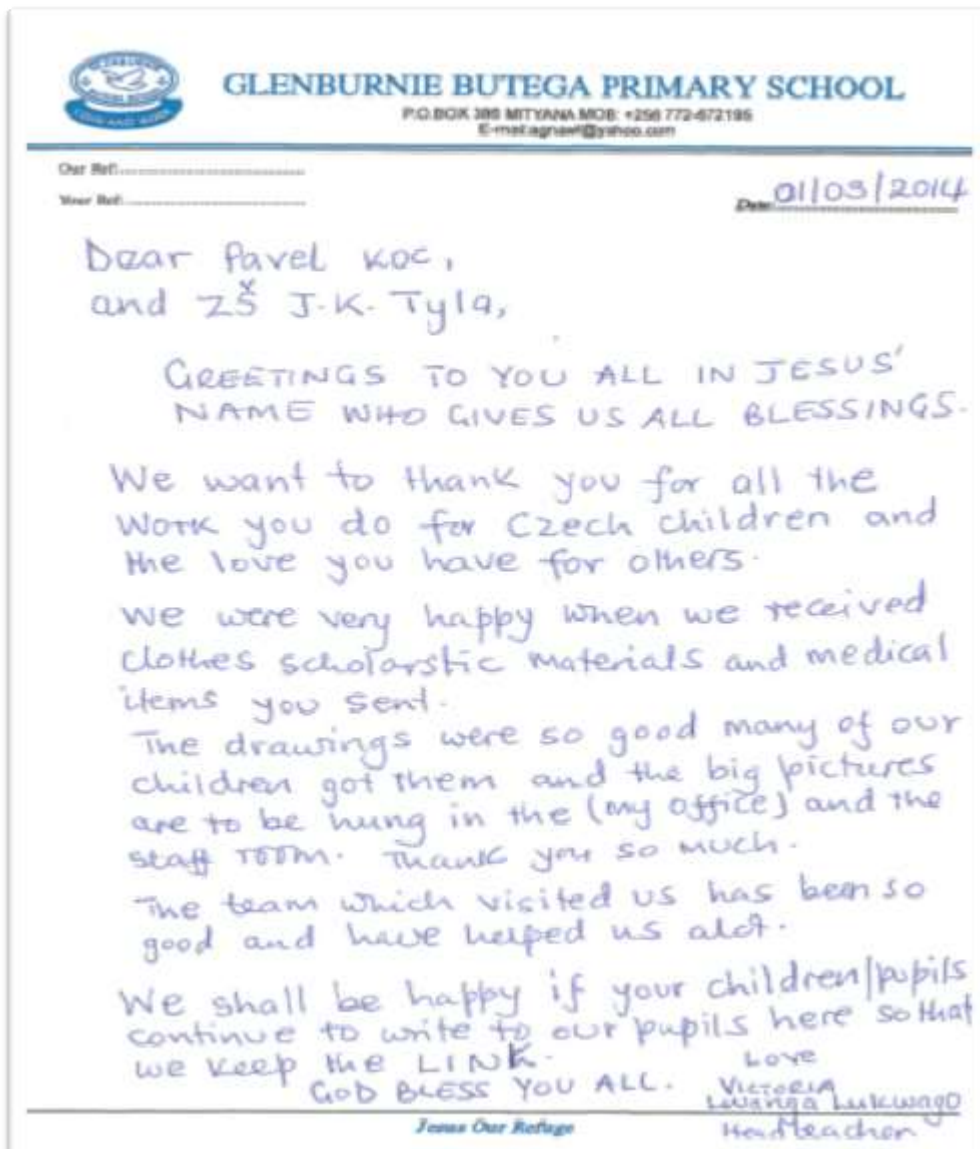 GLENBURNIE BUTEGA PRIMARY SCHOOL
P.O.BOX 386 MITYANA MOB: +256 772-672195
E-mail:agnawl@yahoo.com
Our Ref:
Your Ref:
Date: 01/03/2014
Dear Pavel KOC,
and ZŠ J.K. Tyla,
GREETINGS TO YOU ALL IN JESUS'
NAME WHO GIVES US ALL BLESSINGS.
We want to thank you for all the
work you do for Czech children and
the love you have for others.
We were very happy when we received
clothes scholarstic materials and medical
items you sent.
The drawings were so good many of our
children got them and the big pictures
are to be hung in the (my office) and the
staff room. Thank you so much.
The team which visited us has been so
good and have helped us alot.
We shall be happy if your children/pupils
continue to write to our pupils here so that
we keep the LINK.
GOD BLESS YOU ALL.
Love
VICTORIA
Lwanga Lukwago
Headteacher
Jesus Our Refuge